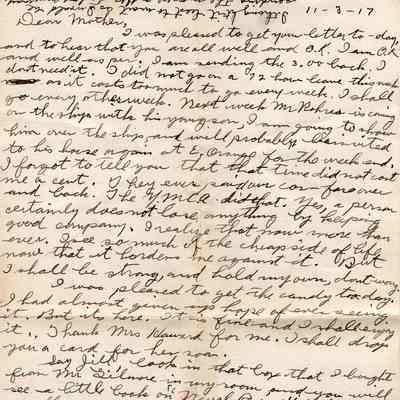 11-3-17
Dear Mother,
I was pleased to get your letter to-day,
and to hear that you are all well and O.K. I am O.K.
and well as per. I am sending the 2.00 back. I
dont need it. I did not go on a 72 hour leave this week
as it costs too much to go every week. I shall
go every other week. Next week Mr is coming
on the ship with his young son, I am going to show
him over the ship, and will probably be invited
to his house again at E. Orange for the week end.
I forgot to tell you that that time did not cost
me a cent. They even paid our car fare over
and back. The Y M C A did that. Yes a person
certainly does not lose anything by keeping
good company. I realize that now more than
ever. I see so much of the cheap side of life
now that it hardens me against it. But
I shall be strong, and hold my own, dont worry.
I was pleased to get the candy to-day.
I had almost given up hope of ever seeing
it. But its here. It is fine and I shall enjoy
it. Thank Mrs Howard for me. I shall drop
you a card for her soon.
Say Jill look in that box that I bought
from Mr Gilmore in my room and you will
see a little book on Naval